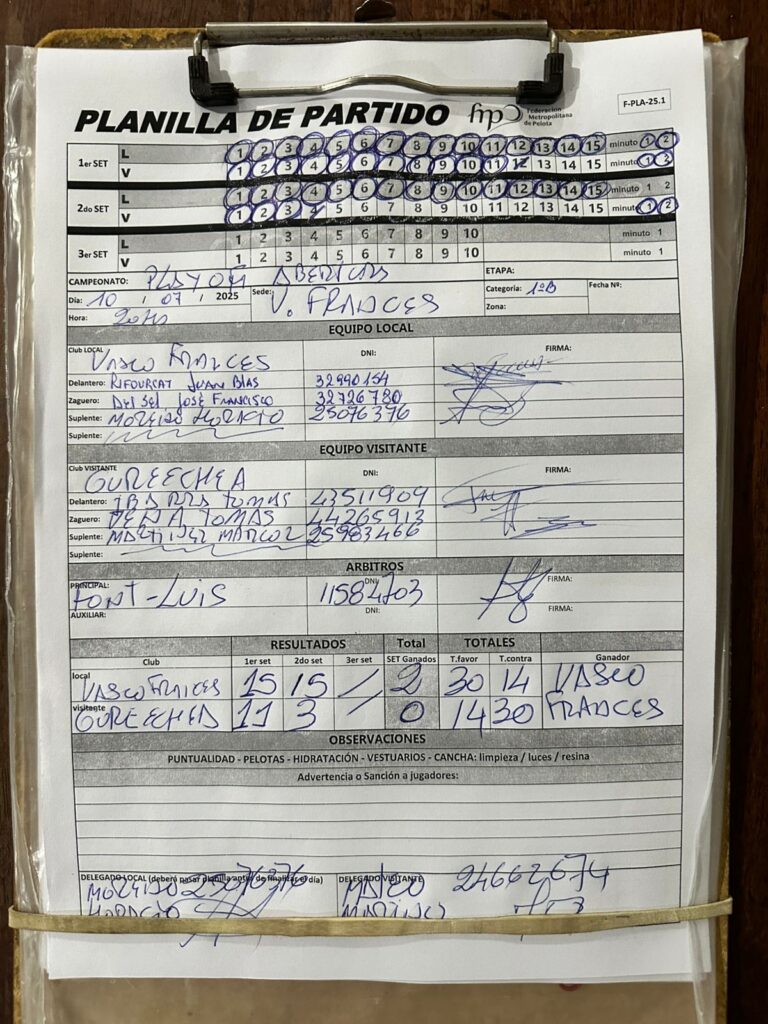 PLANILLA DE PARTIDO
Federación
Metropolitana
de Pelota
F-PLA-25.1
1er SET L 1 2 3 4 5 6 7 8 9 10 11 12 13 14 15 minuto 1 2
V 1 2 3 4 5 6 7 8 9 10 11 12 13 14 15 minuto 1 2
2do SET L 1 2 3 4 5 6 7 8 9 10 11 12 13 14 15 minuto 1 2
V 1 2 3 4 5 6 7 8 9 10 11 12 13 14 15 minuto 1 2
3er SET L 1 2 3 4 5 6 7 8 9 10 minuto 1
V 1 2 3 4 5 6 7 8 9 10 minuto 1
CAMPEONATO: PLAYOFF ETAPA:
Día: 10 / 07 / 2025 Sede: V. FRANCES Categoria: 1ºB Fecha Nº:
Hora: 20HS Zona:
EQUIPO LOCAL
Club LOCAL VASCO FRANCES DNI: FIRMA:
Delantero: RIFOURCAT JUAN BLAS 32990154
Zaguero: DEL SEL JOSÉ FRANCISCO 32726780
Suplente: MOREIRO HORACIO 25076376
Suplente:
EQUIPO VISITANTE
Club VISITANTE GUREECHEA DNI: FIRMA:
Delantero: TOMAS 43511909
Zaguero: TOMAS 44265913
Suplente: MARTINEZ MARCOS 25983466
Suplente:
ARBITROS
PRINCIPAL: FONT-LUIS DNI: 11584703 FIRMA:
AUXILIAR: DNI: FIRMA:
RESULTADOS Total TOTALES
Club 1er set 2do set 3er set SET Ganados T.favor T.contra Ganador
local VASCO FRANCES 15 15 / 2 30 14 VASCO
visitante GUREECHEA 11 3 / 0 14 30 FRANCES
OBSERVACIONES
PUNTUALIDAD - PELOTAS - HIDRATACIÓN - VESTUARIOS - CANCHA: limpieza / luces / resina
Advertencia o Sanción a jugadores:
DELEGADO LOCAL (deberá pasar planilla antes de finalizar el día) DELEGADO VISITANTE
MOREIRO 25076376 24662674
HORACIO